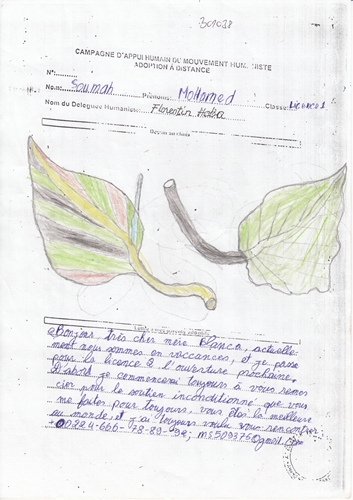 301038
CAMPAGNE D'APPUI HUMAIN DU MOUVEMENT HUMANISTE
ADOPTION À DISTANCE
N°:
Nom: Soumah Prénoms: Mohamed Classe: Licence 1
Nom du Délégués Humaniste: Florentin Haba
Dessin au choix
Bonjour très cher mère Blanca, actuelle-
ment nous sommes en vaccances, et je passe
pour la licence 2 à l'ouverture prochaine.
D'abord je commencerai toujours à vous remer
cier pour le soutien inconditionné que vous
me faites pour toujours, vous êtes la meilleure
au monde, et j'ai toujours voulu vous rencontrer
+00224-666-78-89-92; ms509375@gmail.com